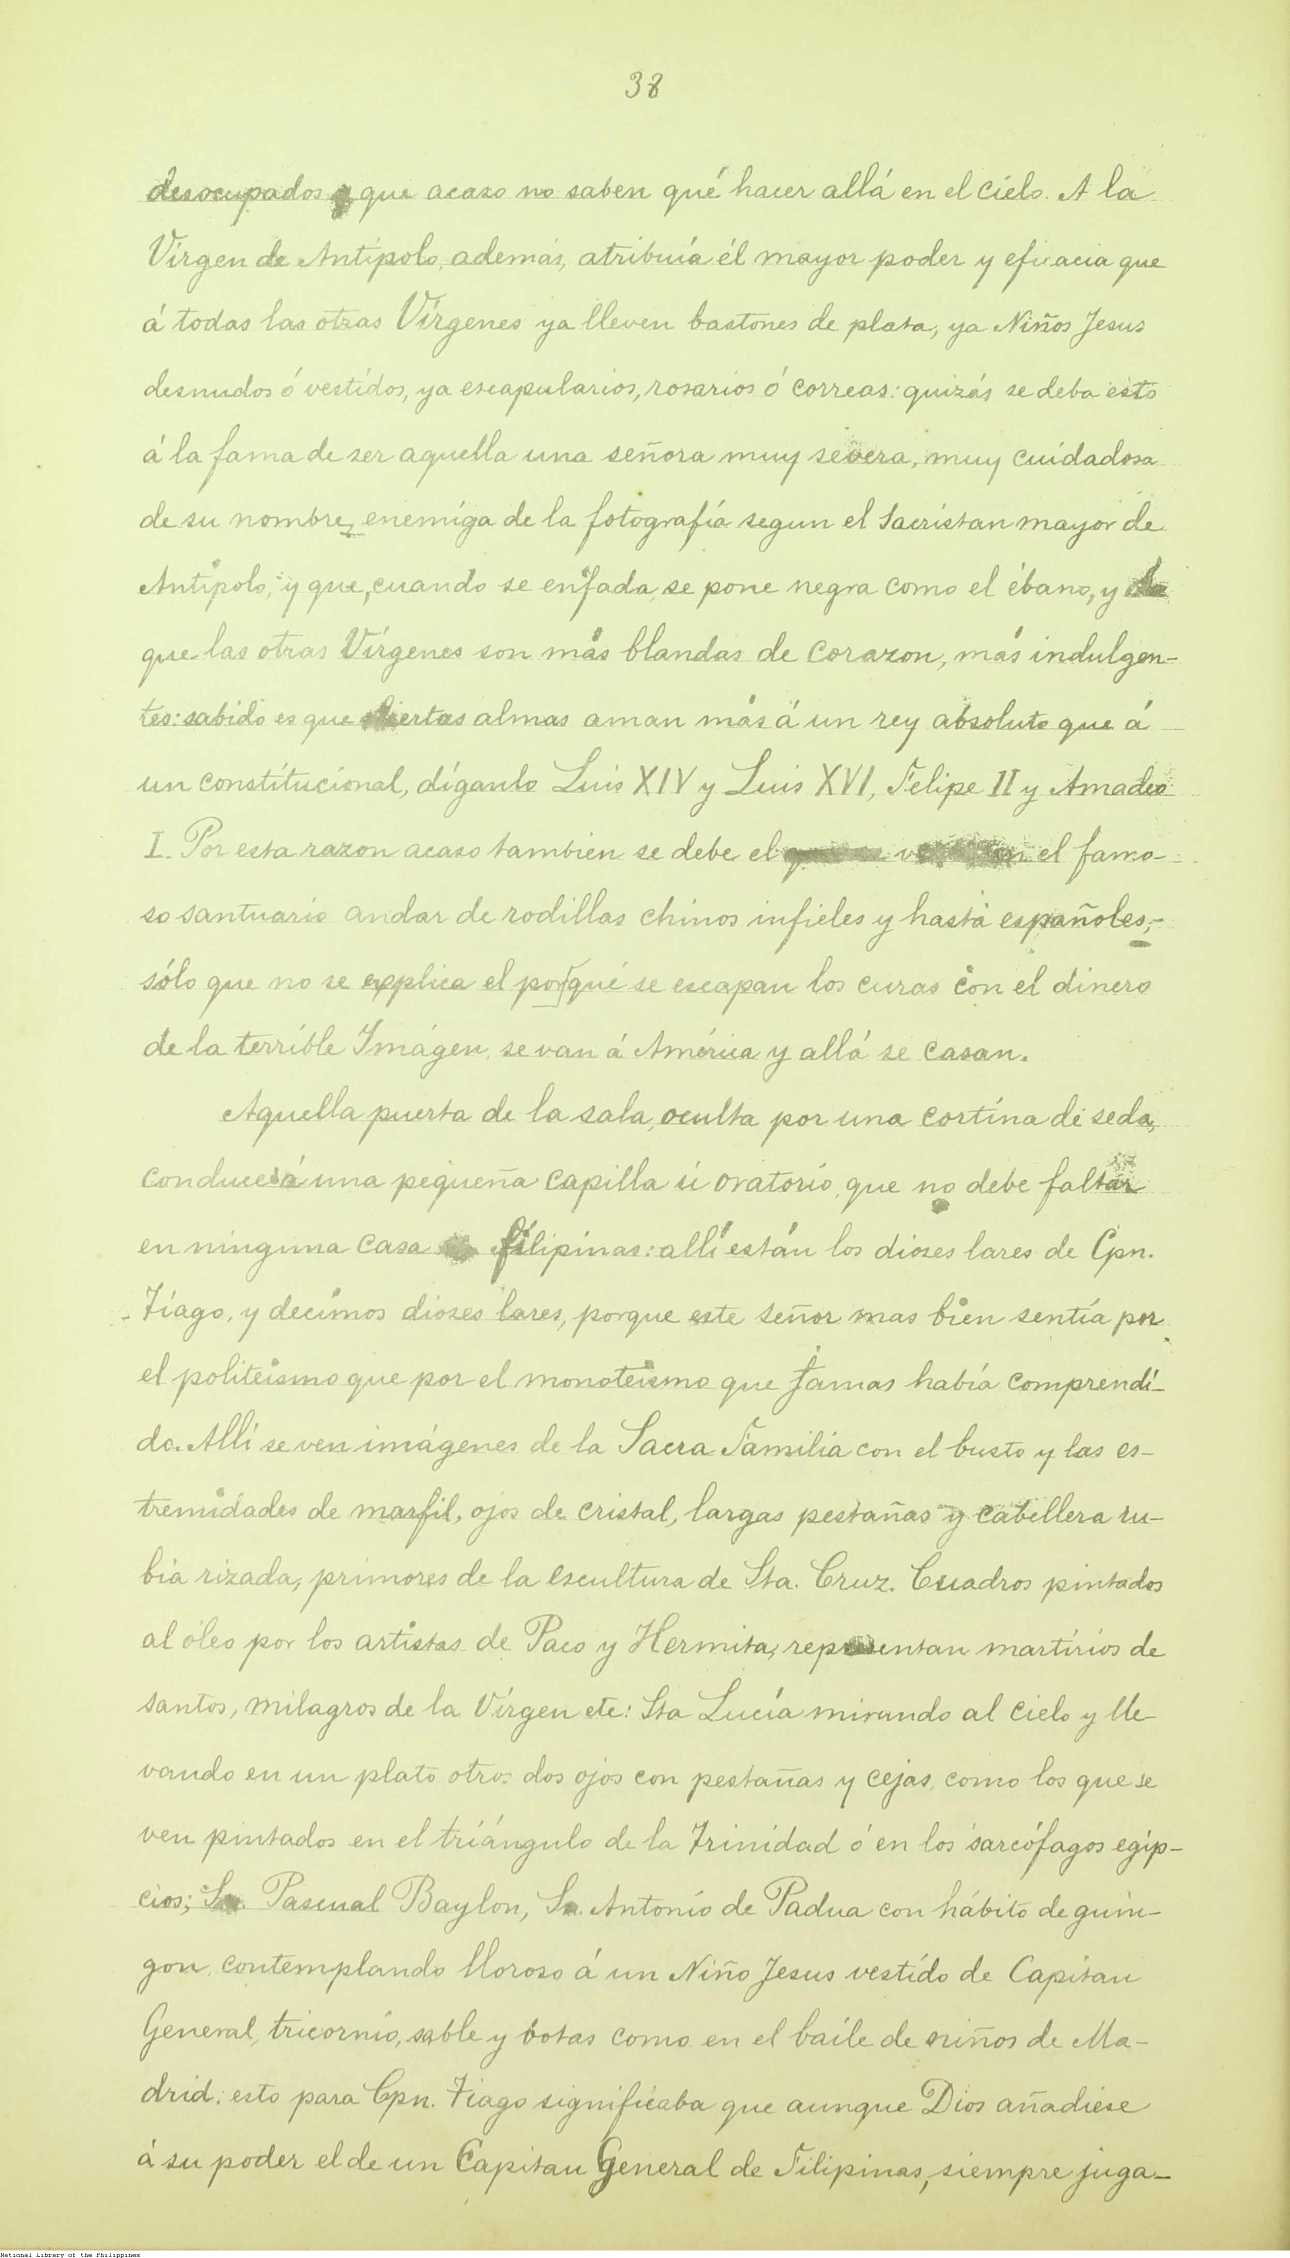 38
desocupados que acaso no saben qué hacer allá en el cielo. A la
Vírgen de Antípolo, además, atribuía él mayor poder y eficacia que
á todas las otras Vírgenes ya lleven bastones de plata, ya Niños Jesus
desnudos ó vestídos, ya escapularios, rosarios ó correas: quizás se deba esto
á la fama de ser aquella una señora muy severa, muy cuidadosa
de su nombre, enemíga de la fotografía segun el Sacristan mayor de
Antípolo, y que, cuando se enfada, se pone negra como el ébano, y
que las otras Vírgenes son más blandas de corazon, más indulgen-
tes: sabído es que ciertas almas aman más á un rey absoluto que á
un constítucional, díganlo Luis XIV y Luis XVI, Felipe II y Amadeo
I. Por esta razon acaso tambien se debe el en el famo-
so santuario andar de rodillas chinos infieles y hasta españoles,-
sólo que no se explica el por qué se escapan los curas con el dinero
de la terríble Imágen, se van á América y allá se casan.
Aquella puerta de la sala, oculta por una cortína de seda,
conduce á una pequeña capilla ú oratorio, que no debe faltar
en ninguna casa filipinas: allí están los dioses lares de Cpn.
Tíago, y decímos dioses lares, porque este señor mas bien sentía por
el politeismo que por el monoteismo que jamas había comprendí-
do. Allí se ven imágenes de la Sacra Familia con el busto y las es-
tremidades de marfil, ojos de cristal, largas pestañas y cabellera ru-
bia rizada, primores de la escultura de Sta. Cruz. Cuadros pintados
al óleo por los artistas de Paco y Hermita, representan martirios de
santos, milagros de la Vírgen etc: Sta Lucía mirando al cielo y lle-
vando en un plato otros dos ojos con pestañas y cejas, como los que se
ven pintados en el tríángulo de la Trinidad ó en los sarcófagos egip-
cios; Sn. Pascual Baylon, Sn. Antonío de Padua con hábito de guin-
gon, contemplando lloroso á un Niño Jesus vestído de Capitan
General, tricornio, sable y botas como en el baile de niños de Ma-
drid: esto para Cpn. Tiago significaba que aunque Dios añadiese
á su poder el de un Capitan General de Filipinas, siempre juga-
National Library of the Philippines